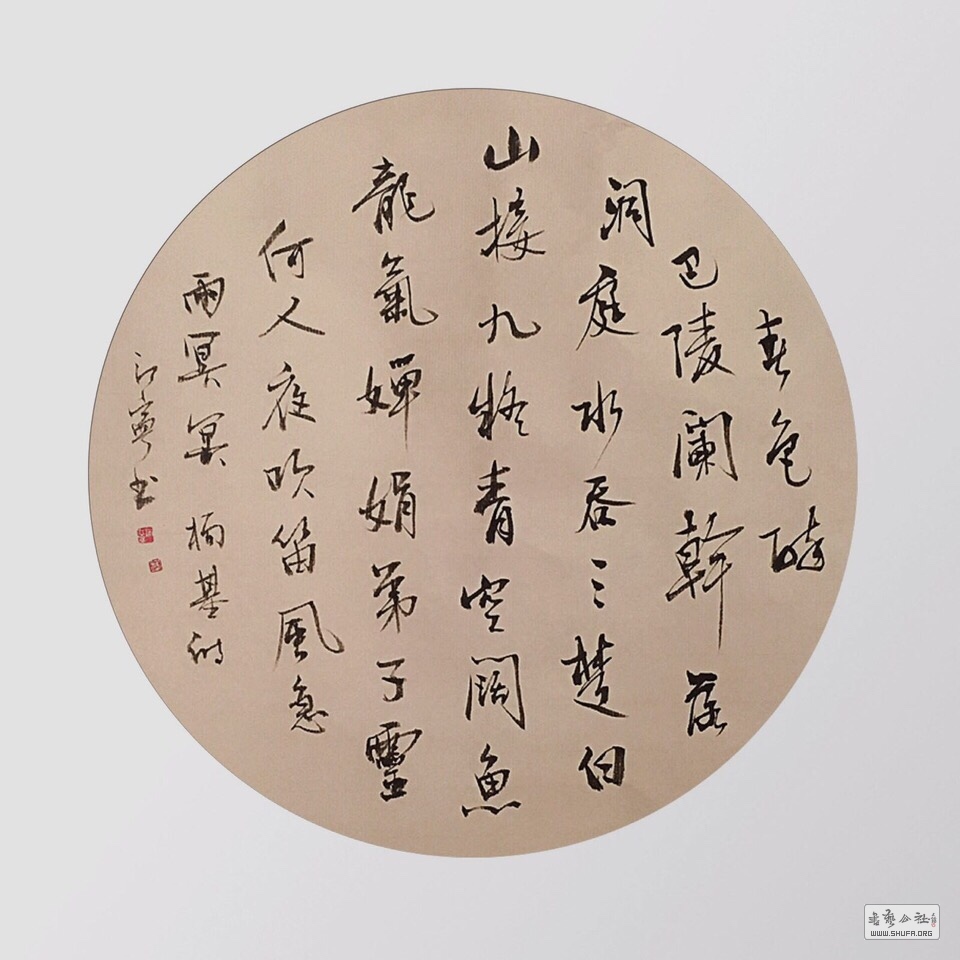 春色醉
巴陵闌幹落
洞庭水吞三楚白
山接九疑青空闊魚
龍氣嬋娟弟子靈
何人夜吹笛風急
雨冥冥楊基詩
寧書
書藝公社
WWW.SHUFA.ORG